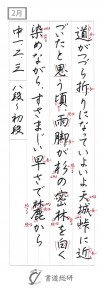 2月
道がつづら折りになっていよいよ天城峠に近
づいたと思う頃、雨脚が杉の密林を白く
染めながら、すさまじい早さで麓から
中一・二・三 八段〜初段
書道総研